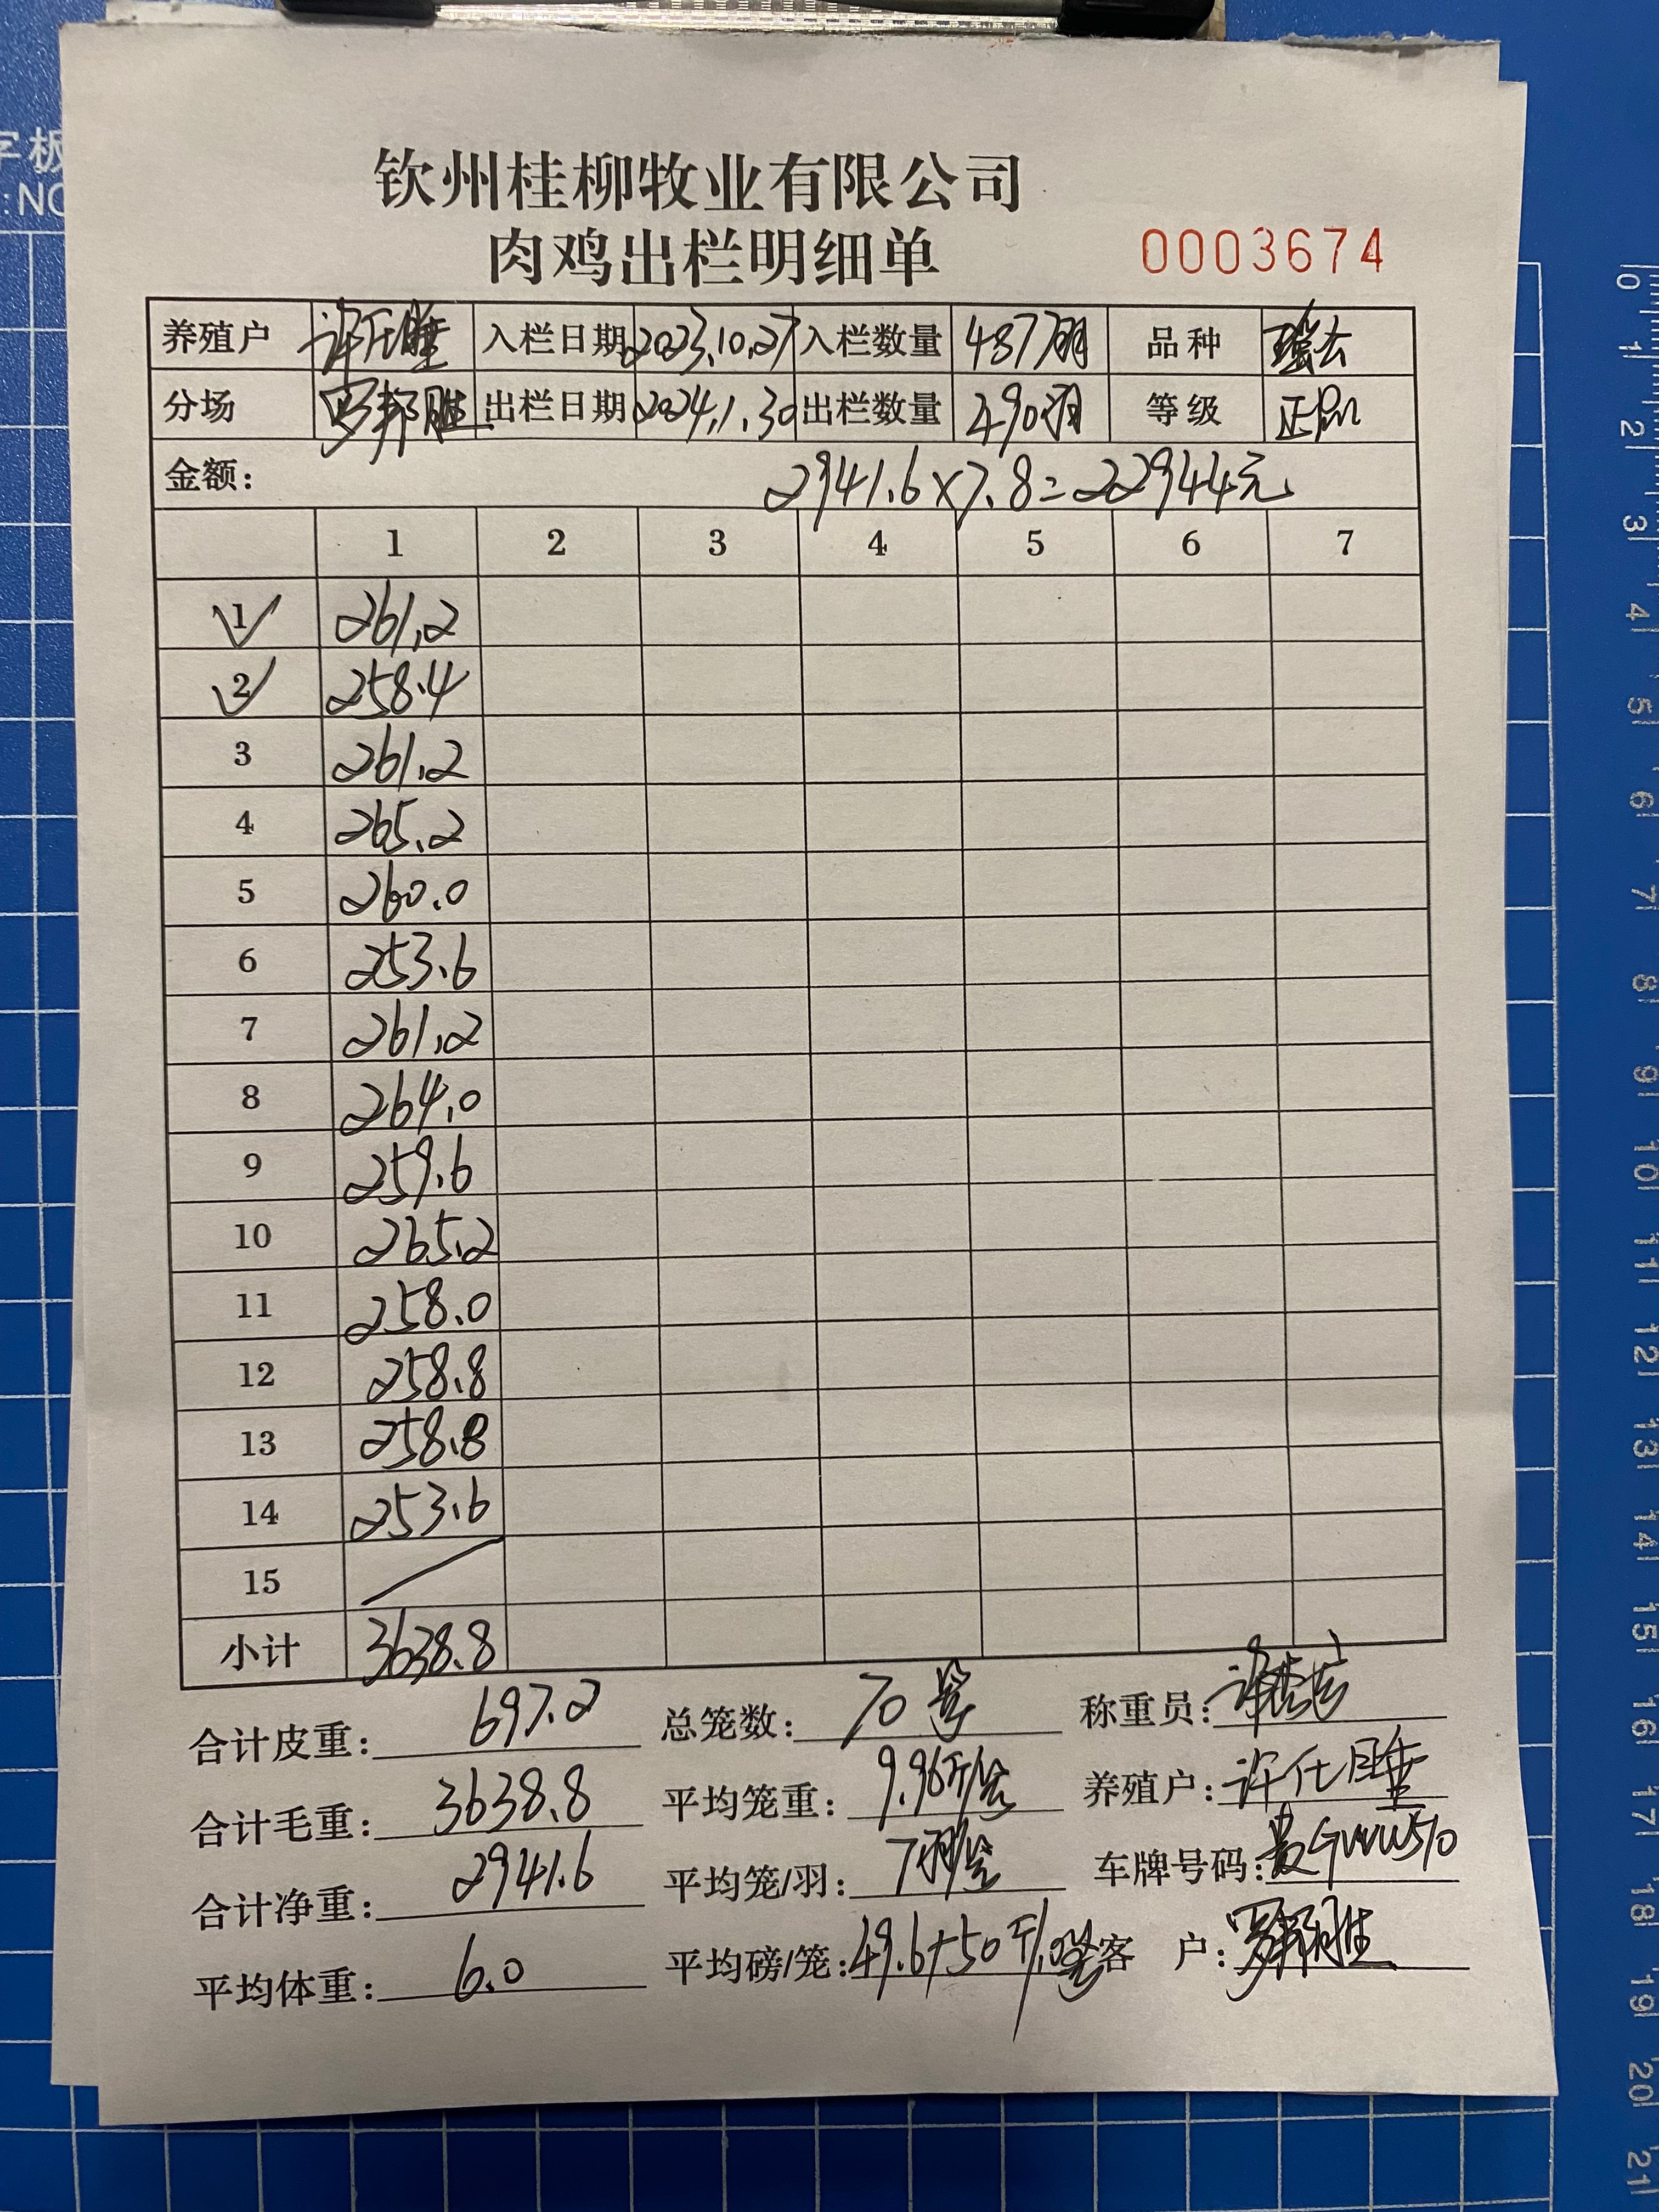 钦州桂柳牧业有限公司
肉鸡出栏明细单 0003674
养殖户 许仕睡 入栏日期 2023.10.27 入栏数量 487羽 品种
分场 罗邦胜 出栏日期 2024.1.30 出栏数量 490羽 等级 正品
金额: 2941.6×7.8=22944元
1 2 3 4 5 6 7
1 261.2
2 258.4
3 261.2
4 265.2
5 260.0
6 253.6
7 261.2
8 264.0
9 259.6
10 265.2
11 258.0
12 258.8
13 258.8
14 253.6
15
小计 3638.8
合计皮重: 697.2 总笼数: 70笼 称重员:
合计毛重: 3638.8 平均笼重: 9.96斤/笼 养殖户: 许仕睡
合计净重: 2941.6 平均笼/羽: 7羽/笼 车牌号码:
平均体重: 6.0 平均磅/笼: 49.6 客户: 罗邦胜
字板
0 1 2 3 4 5 6 7 8 9 10 11 12 13 14 15 16 17 18 19 20 21